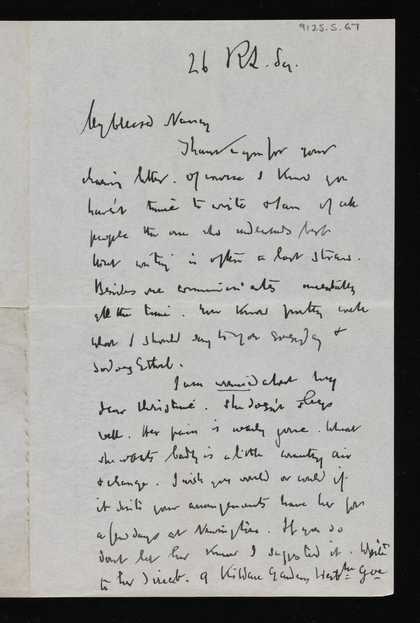 9125.5.67
26 R.L. Sq.
My blessed Nancy
Thank you for your
charing letter. Of course I know you
haven't time to write & I am of all
people the one who understands best
how writing is often a last straw.
Besides we communicates mentally
all the time. You know pretty well
what I should say to you everyday &
so does Ethel.
I am worried about my
dear Christine. She doesn't sleep
well. Her pain is nearly gone. What
she wants badly is a little country air
& change. I wish you would or could if
it suits your arrangements have her for
a few days at Newington. If you do
don't let her know I suggested it. Write
to her direct. 9 Kildare Gardens Westb Gve